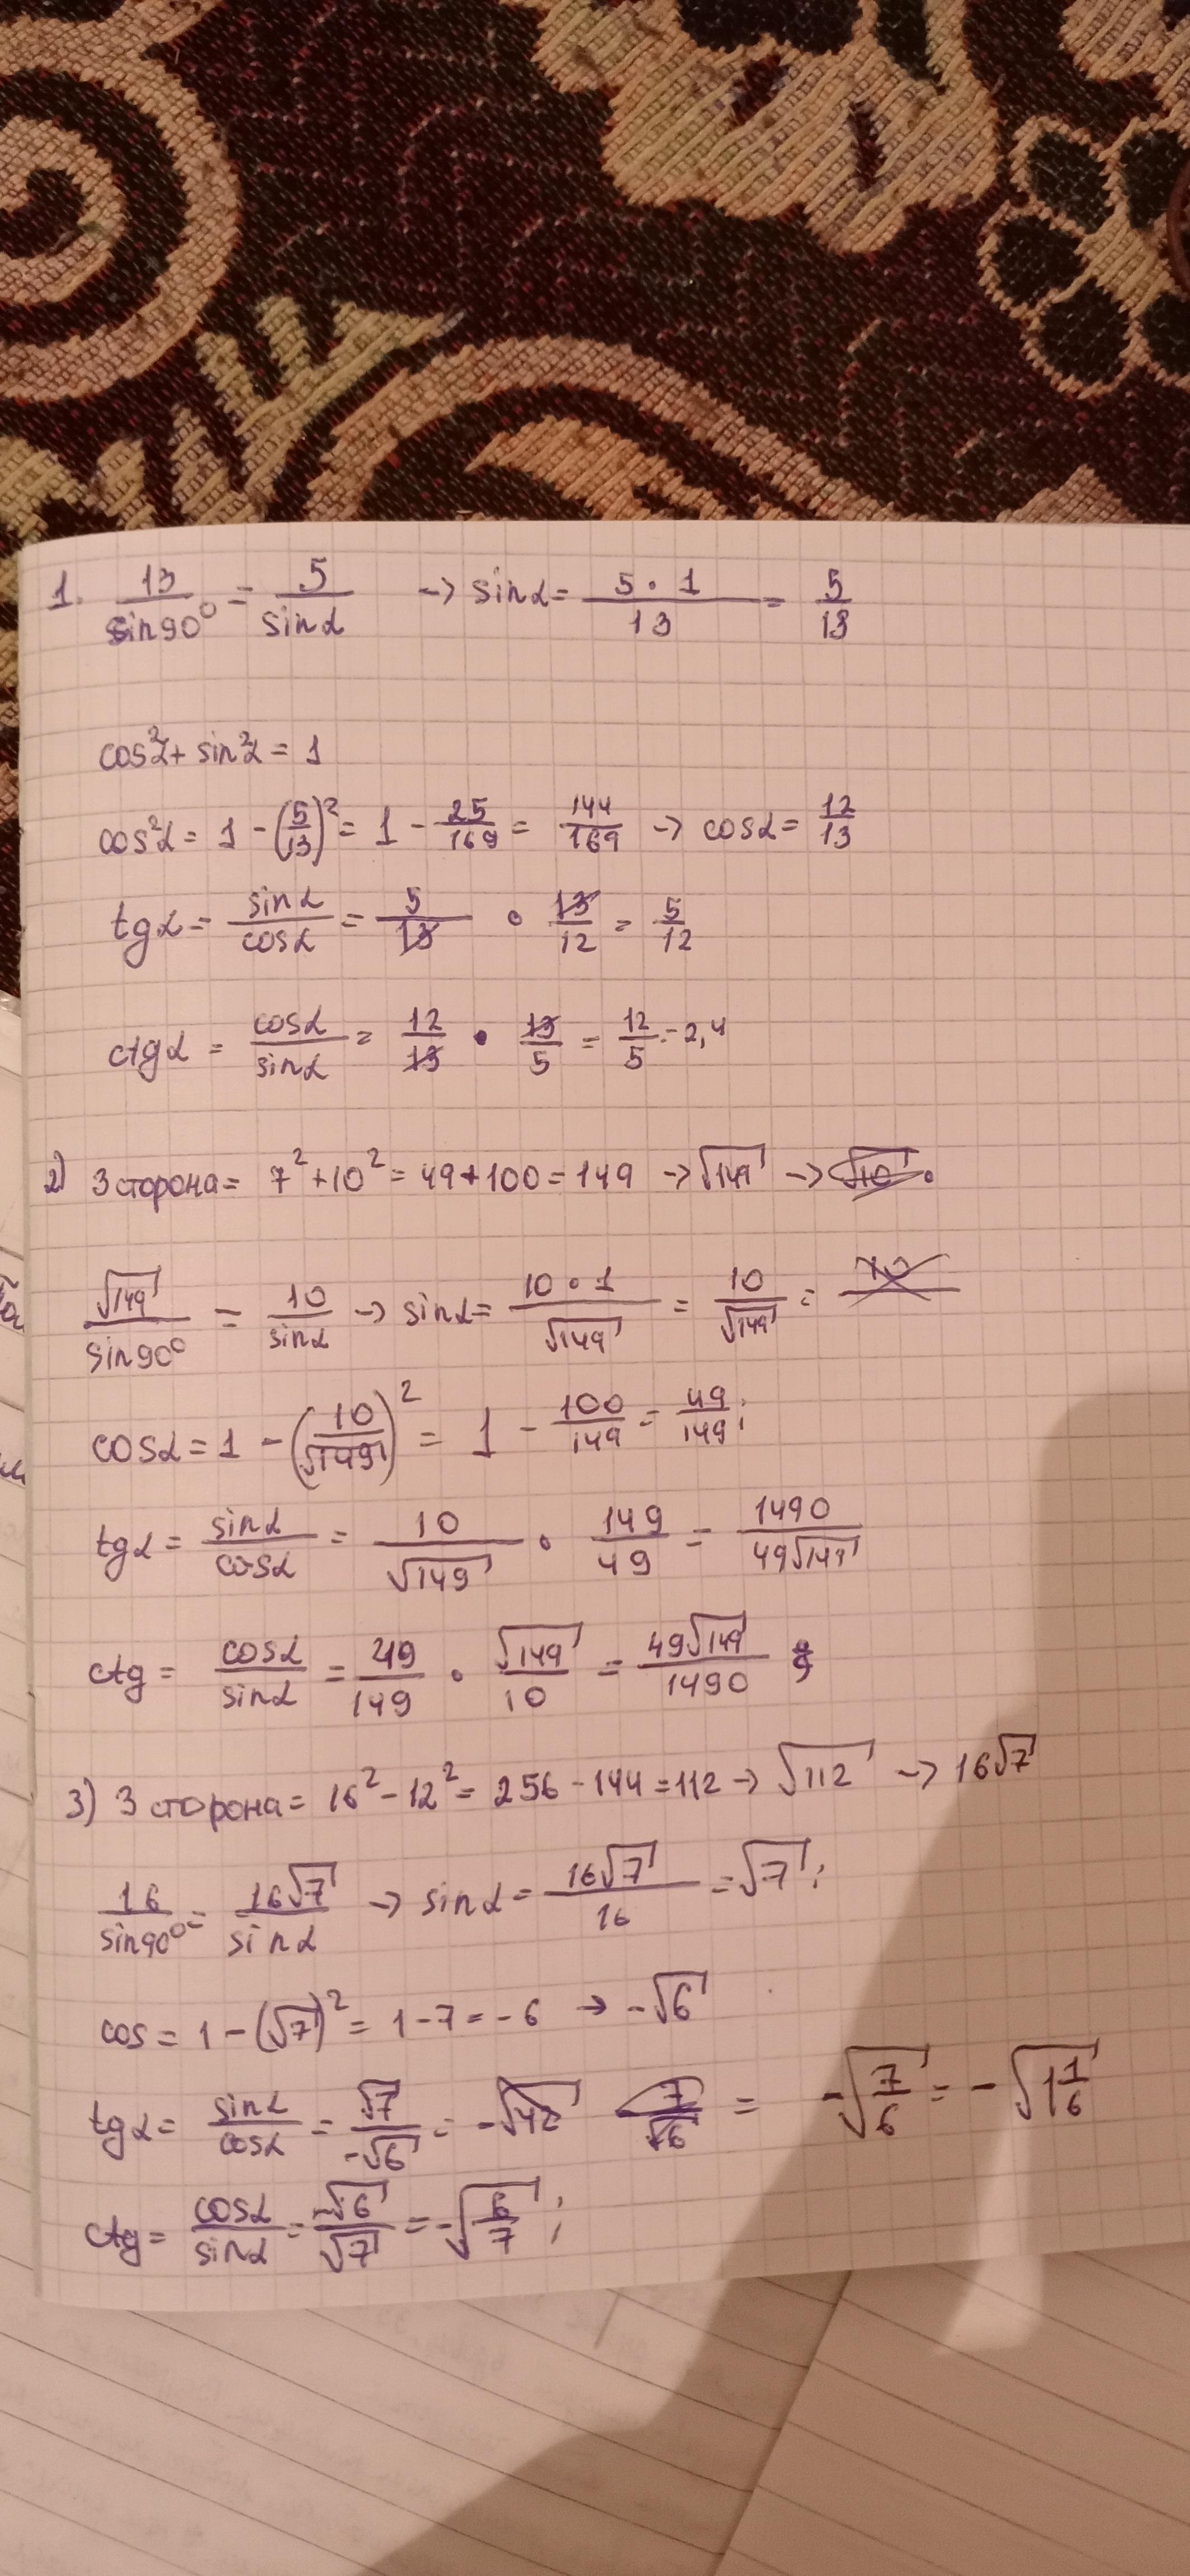 1. 13/sin90° = 5/sinα -> sinα = 5·1/13 = 5/13
cos²α + sin²α = 1
cos²α = 1 - (5/13)² = 1 - 25/169 = 144/169 -> cosα = 12/13
tgα = sinα/cosα = 5/13 · 13/12 = 5/12
ctgα = cosα/sinα = 12/13 · 13/5 = 12/5 = 2,4
2) 3 сторона = 7² + 10² = 49 + 100 = 149 -> √149 ->
√149/sin90° = 10/sinα -> sinα = 10·1/√149 = 10/√149 =
cosα = 1 - (10/√149)² = 1 - 100/149 = 49/149;
tgα = sinα/cosα = 10/√149 · 149/49 = 1490/49√149
ctg = cosα/sinα = 49/149 · √149/10 = 49√149/1490
3) 3 сторона = 16² - 12² = 256 - 144 = 112 -> √112 -> 16√7
16/sin90° = 16√7/sinα -> sinα = 16√7/16 = √7;
cos = 1 - (√7)² = 1 - 7 = -6 -> -√6
tgα = sinα/cosα = √7/-√6 = -√42 7/√6 = -√7/6 = -√1 1/6
ctg = cosα/sinα = -√6/√7 = -√6/7;